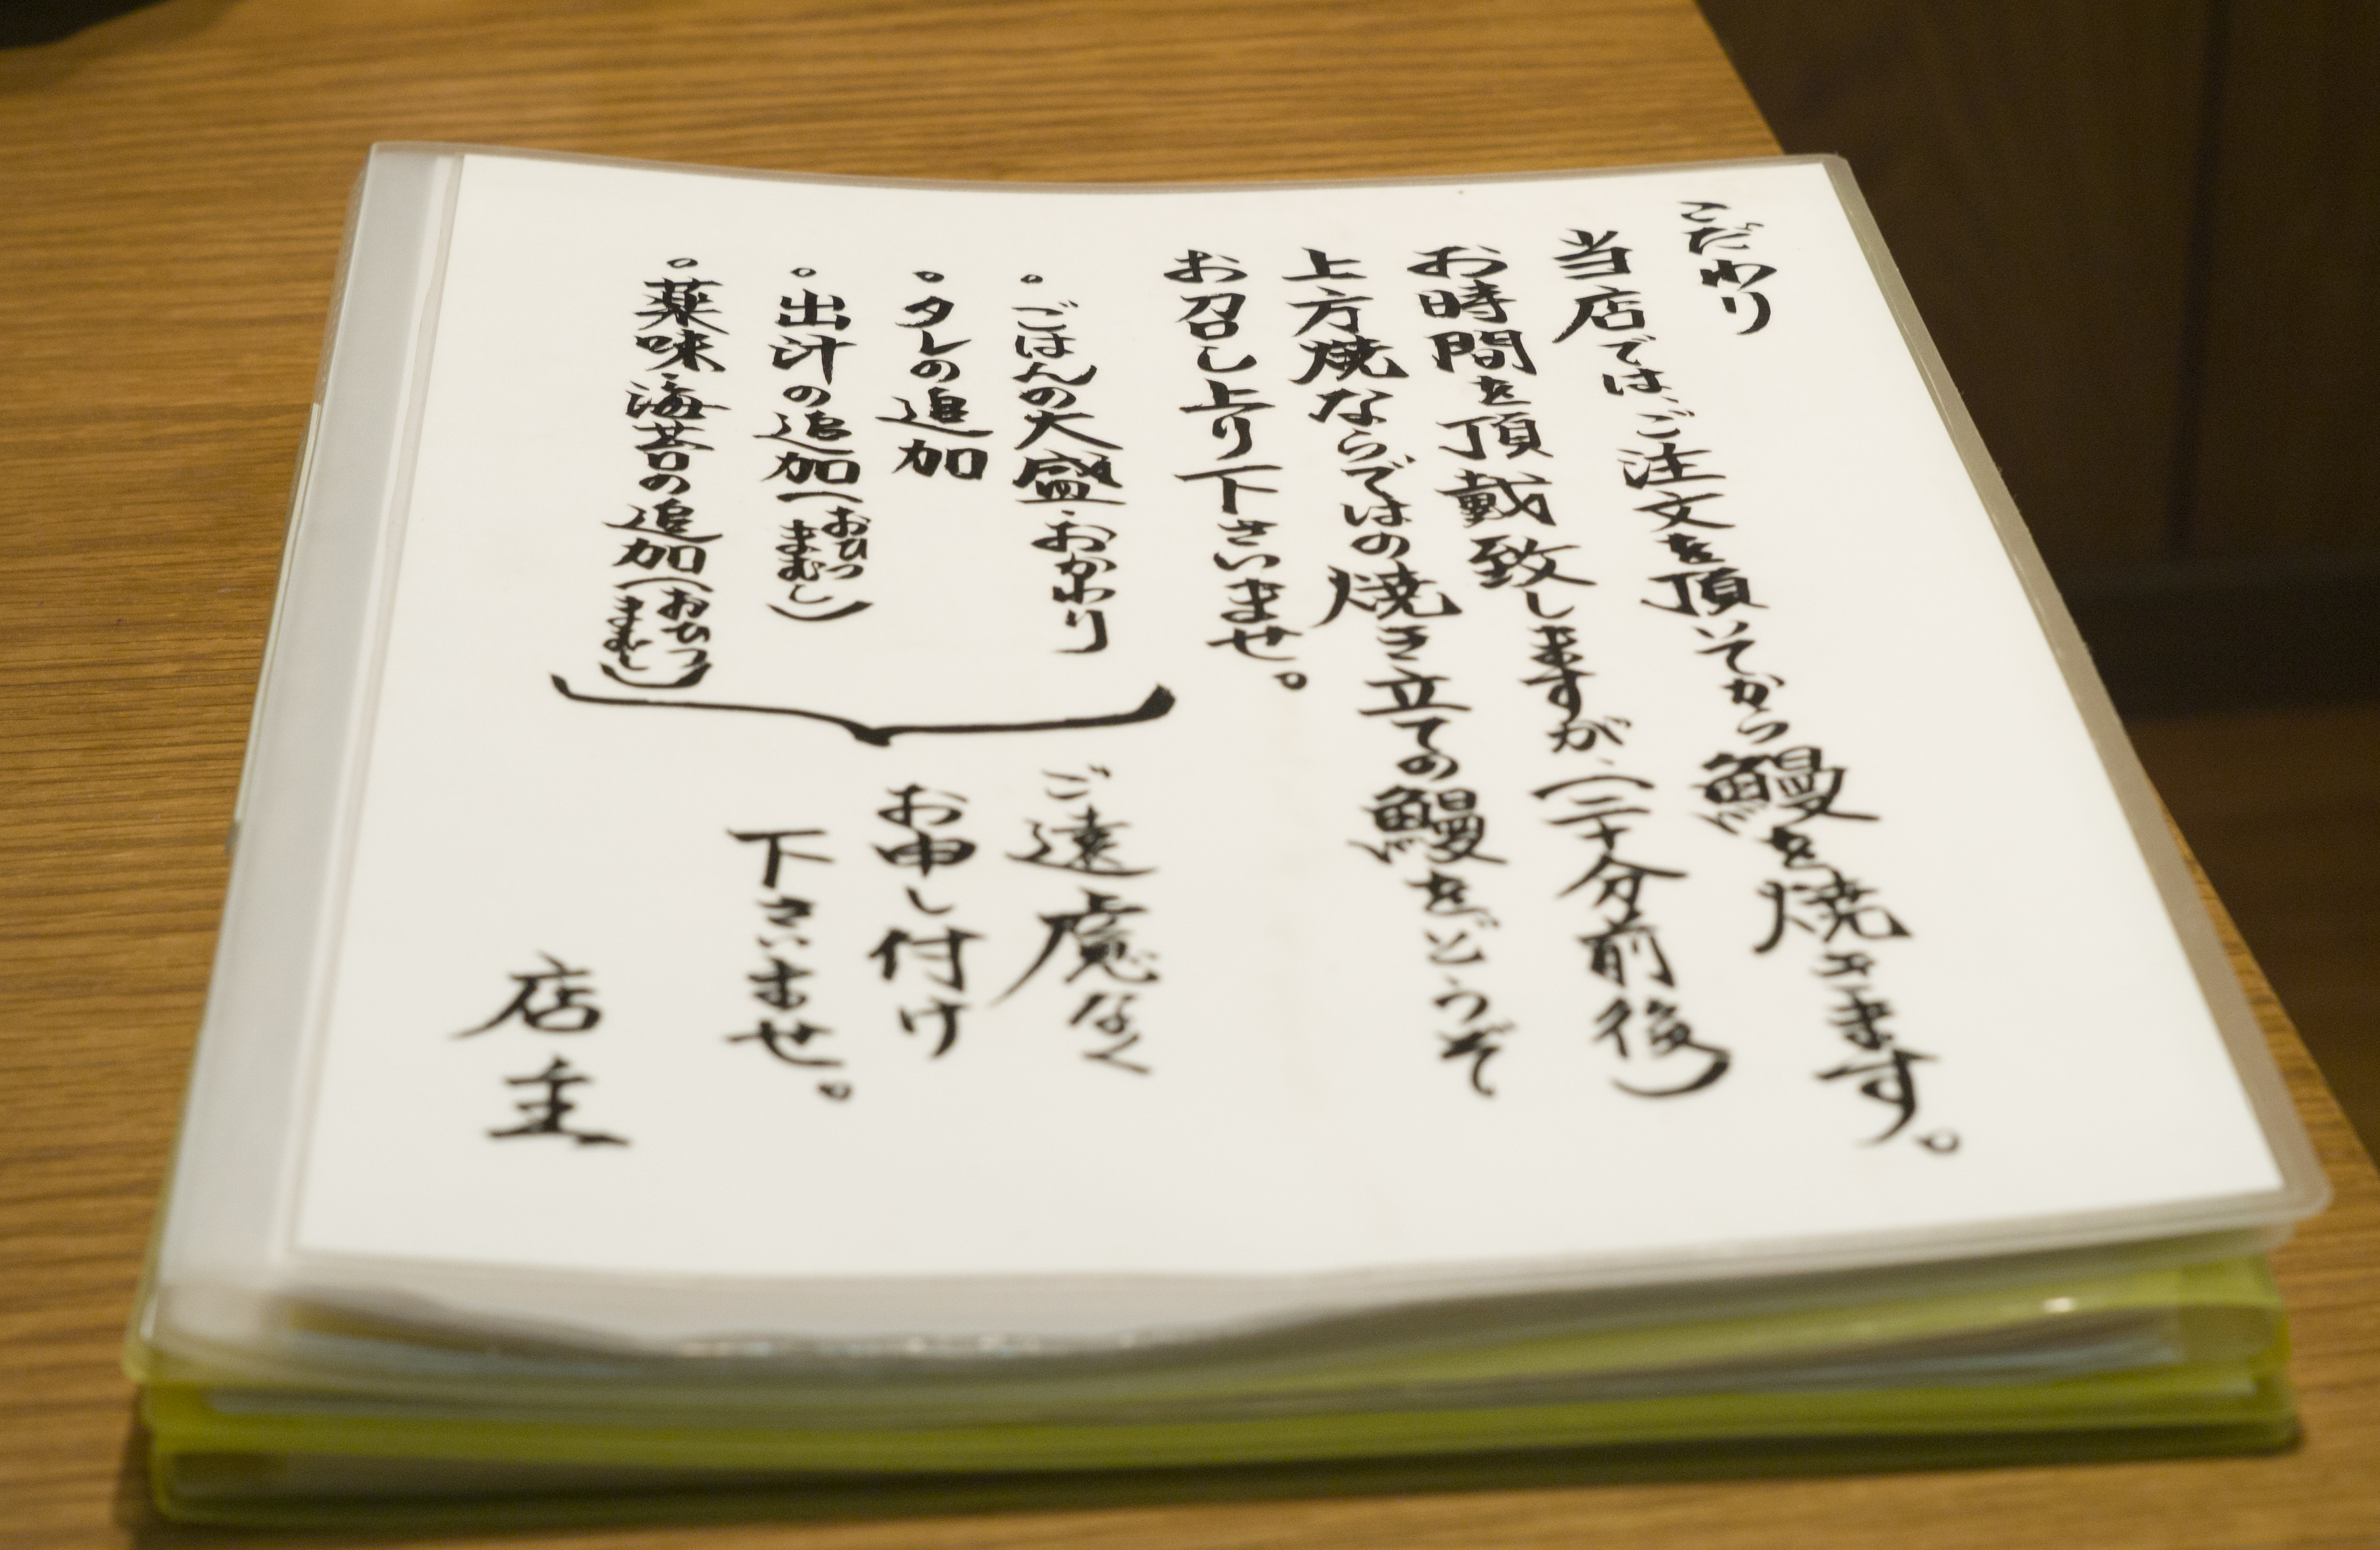 こだわり
当店では、ご注文を頂いてから鰻を焼きます。
お時間を頂戴致しますが、(二十分前後)
上方焼ならではの焼き立ての鰻をどうぞ
お召し上り下さいませ。
。ごはんの大盛・おかわり
。タレの追加
。出汁の追加(おひつまむし)
。薬味・海苔の追加(おひつまむし)
ご遠慮なく
お申し付け
下さいませ。
店主